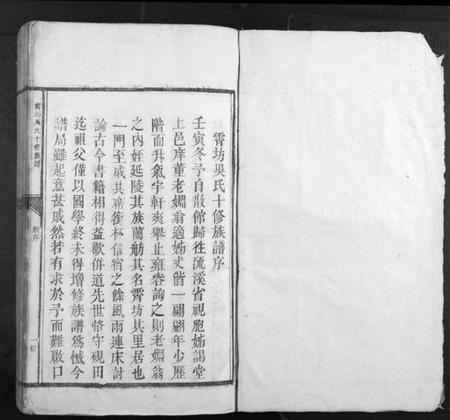 霄坊吳氏十修族譜序
壬寅冬予自散館歸徃流溪省視胞姊謁堂
上邑庠董老媚翁適姊丈偕一翩翩年少歷
階而升氣宇軒爽舉止雍容詢之則老媚翁
之內姪延陵其族蘭舫其名霄坊其里居也
一門至戚其席銜杯信宿之餘風雨連床討
論古今書籍相得益歡併道先世恪守硯田
迄祖父僅以國學終未得增修族譜爲憾今
譜局雖起意甚戚然若有求於予而難啟口
霄坊吳氏十修族譜
序
一